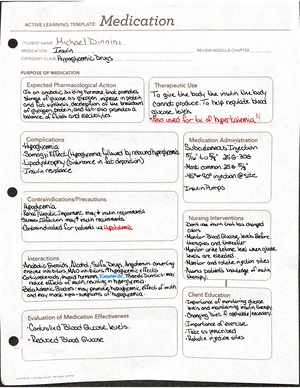 ACTIVE LEARNING TEMPLATE: Medication
STUDENT NAME Michael Dinnini
MEDICATION Insulin
REVIEW MODULE CHAPTER
CATEGORY CLASS Hypoglycemic Drugs
PURPOSE OF MEDICATION
Expected Pharmacological Action
is an anabolic building hormone that promotes
storage of glucose as glycogen, increase in protein
and fat synthesis, deceleration of the breakdown
of glycogen, protein, and fat. also promotes a
balance of fluids and electrolytes
Therapeutic Use
To give the body the insulin the body
cannot produce. To help regulate blood
glucose levels.
*Also used for tx of hyperkalemia!!
Complications
-Hypoglycemia
-Somogyi Effect (hypoglycemia followed by rebound hyperglycemia)
-Lipodystrophy (disturbance in fat deposition)
-Insulin resistance
Medication Administration
Subcutaneous Injection
-Most common 25 G 5/8"
-45° or 90° injection @ site
Insulin Pumps
Contraindications/Precautions
Hypoglycemia
Renal/Hepatic Impairment may ↑ insulin requirements
Stress/Infection may ↑ insulin requirements
Contraindicated for patients w/
Nursing Interventions
Don't use insulin that has changed
color
-Monitor Blood glucose levels before
therapies and thereafter
-Monitor urine ketones level when glucose
levels are elevated.
-Monitor and rotate injection sites
-Assess patients knowledge of insulin
therapy.
Interactions
Anabolic Steroids, Alcohol, Sulfa Drugs, Angiotensin converting
enzyme inhibitors, MAO inhibitors ↑ hypoglycemic effects
Corticosteroids, thyroid hormones, Thiazide Diuretics may
reduce effects of insulin resulting in hyperglycemia
Beta Adrenergic Blockers: may promote hypoglycemic effects of insulin
and may mask signs + symptoms of hypoglycemia
Client Education
-Importance of monitoring glucose
levels and maintaining insulin therapy
-Changing diet if applicable/necessary.
-Importance of exercise.
-Take as prescribed
-Rotate injection sites
Evaluation of Medication Effectiveness
-Controlled Blood Glucose levels.
-Reduced Blood Glucose